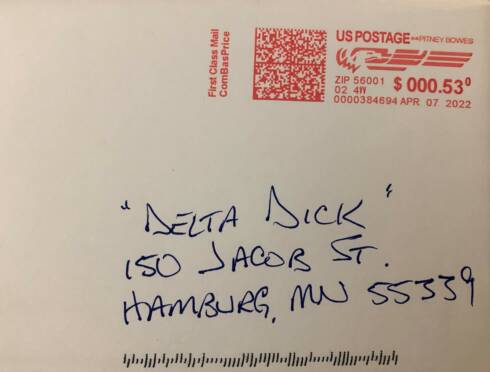 First Class Mail
ComBasPrice
US POSTAGE PITNEY BOWES
ZIP 56001 $ 000.53⁰
02 4W
0000384694 APR 07 2022
"DELTA DICK"
150 JACOB ST.
HAMBURG, MN 55339